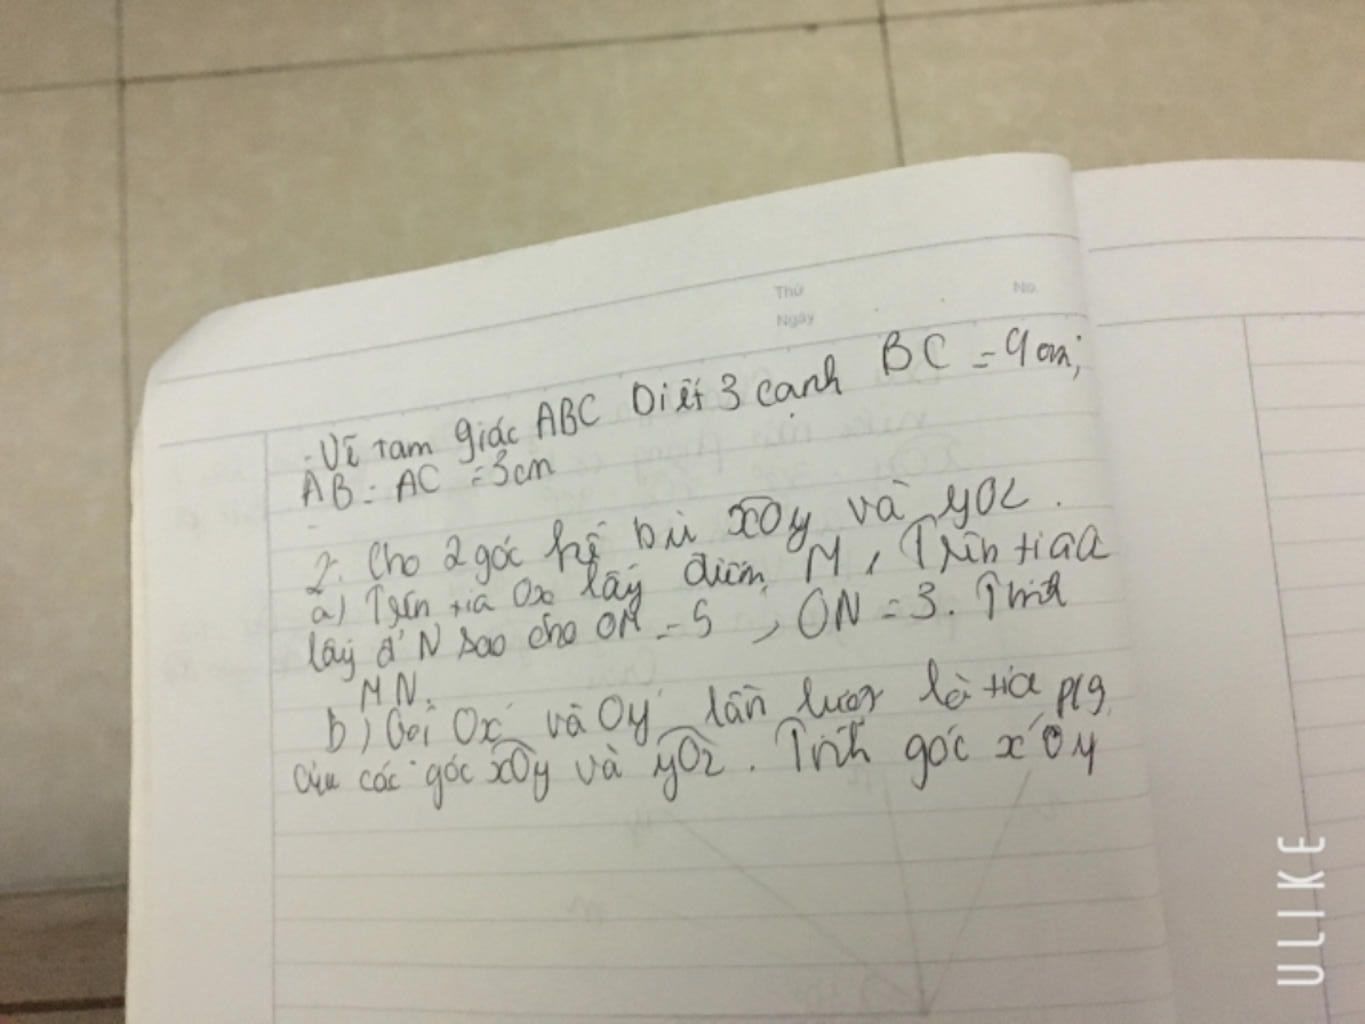 Thứ
No.
Ngày
- Vẽ tam giác ABC biết 3 cạnh BC = 4 cm;
AB = AC = 3cm
2. Cho 2 góc kề bù xOy và yOz.
a) Trên tia Ox lấy điểm M, Trên tia Oz
lấy đ' N sao cho OM = 5, ON = 3. Tính
MN.
b) Gọi Ox' và Oy' lần lượt là tia p/g
của các góc xOy và yOz. Tính góc x'Oy'
ULIKE